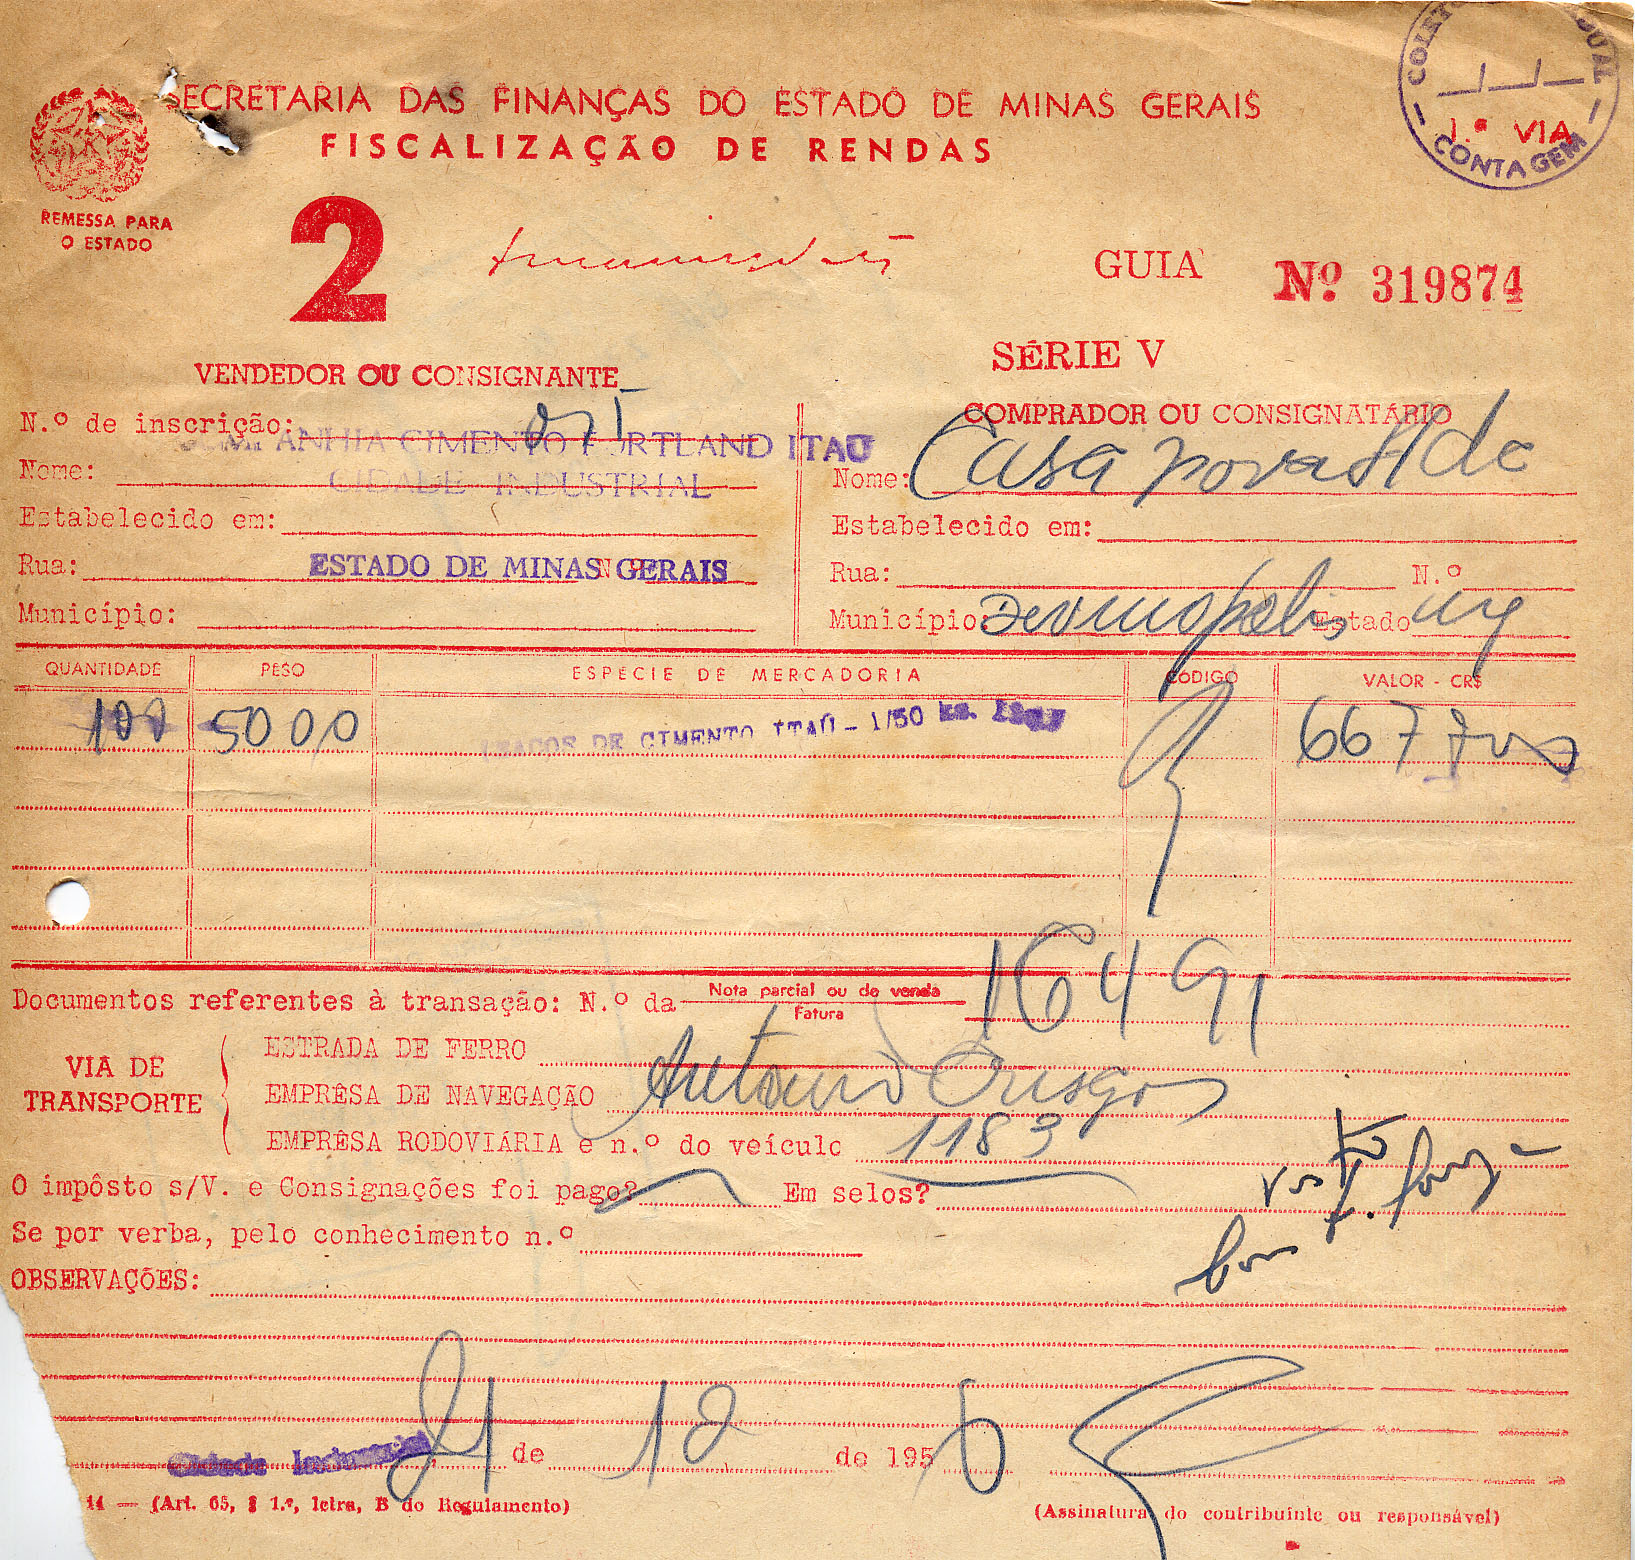 SECRETARIA DAS FINANÇAS DO ESTADO DE MINAS GERAIS
FISCALIZAÇÃO DE RENDAS
1.ª VIA
CONTAGEM
REMESSA PARA
O ESTADO
2
GUIA Nº 319874
SÉRIE V
VENDEDOR OU CONSIGNANTE
COMPRADOR OU CONSIGNATÁRIO
N.º de inscrição:
ANHIA CIMENTO PORTLAND ITAU
Nome:
CIDADE INDUSTRIAL
Nome: Casa nova
Estabelecido em:
Estabelecido em:
Rua: ESTADO DE MINAS GERAIS
Rua: N.º
Município:
Município: Divinopolis Estado mg
QUANTIDADE PESO ESPÉCIE DE MERCADORIA CÓDIGO VALOR - CR$
100 5000 DE CIMENTO ITAÚ - 1/50 667
Documentos referentes à transação: N.º da Nota parcial ou de venda 16491
Fatura
VIA DE TRANSPORTE
ESTRADA DE FERRO
EMPRÊSA DE NAVEGAÇÃO Antonio
EMPRÊSA RODOVIÁRIA e n.º do veículo 1183
O impôsto s/V. e Consignações foi pago? Em selos?
Se por verba, pelo conhecimento n.º
OBSERVAÇÕES:
Cidade Industrial, 21 de 12 de 1956
14 — (Art. 65, § 1.º, letra, B do Regulamento)
(Assinatura do contribuinte ou responsável)